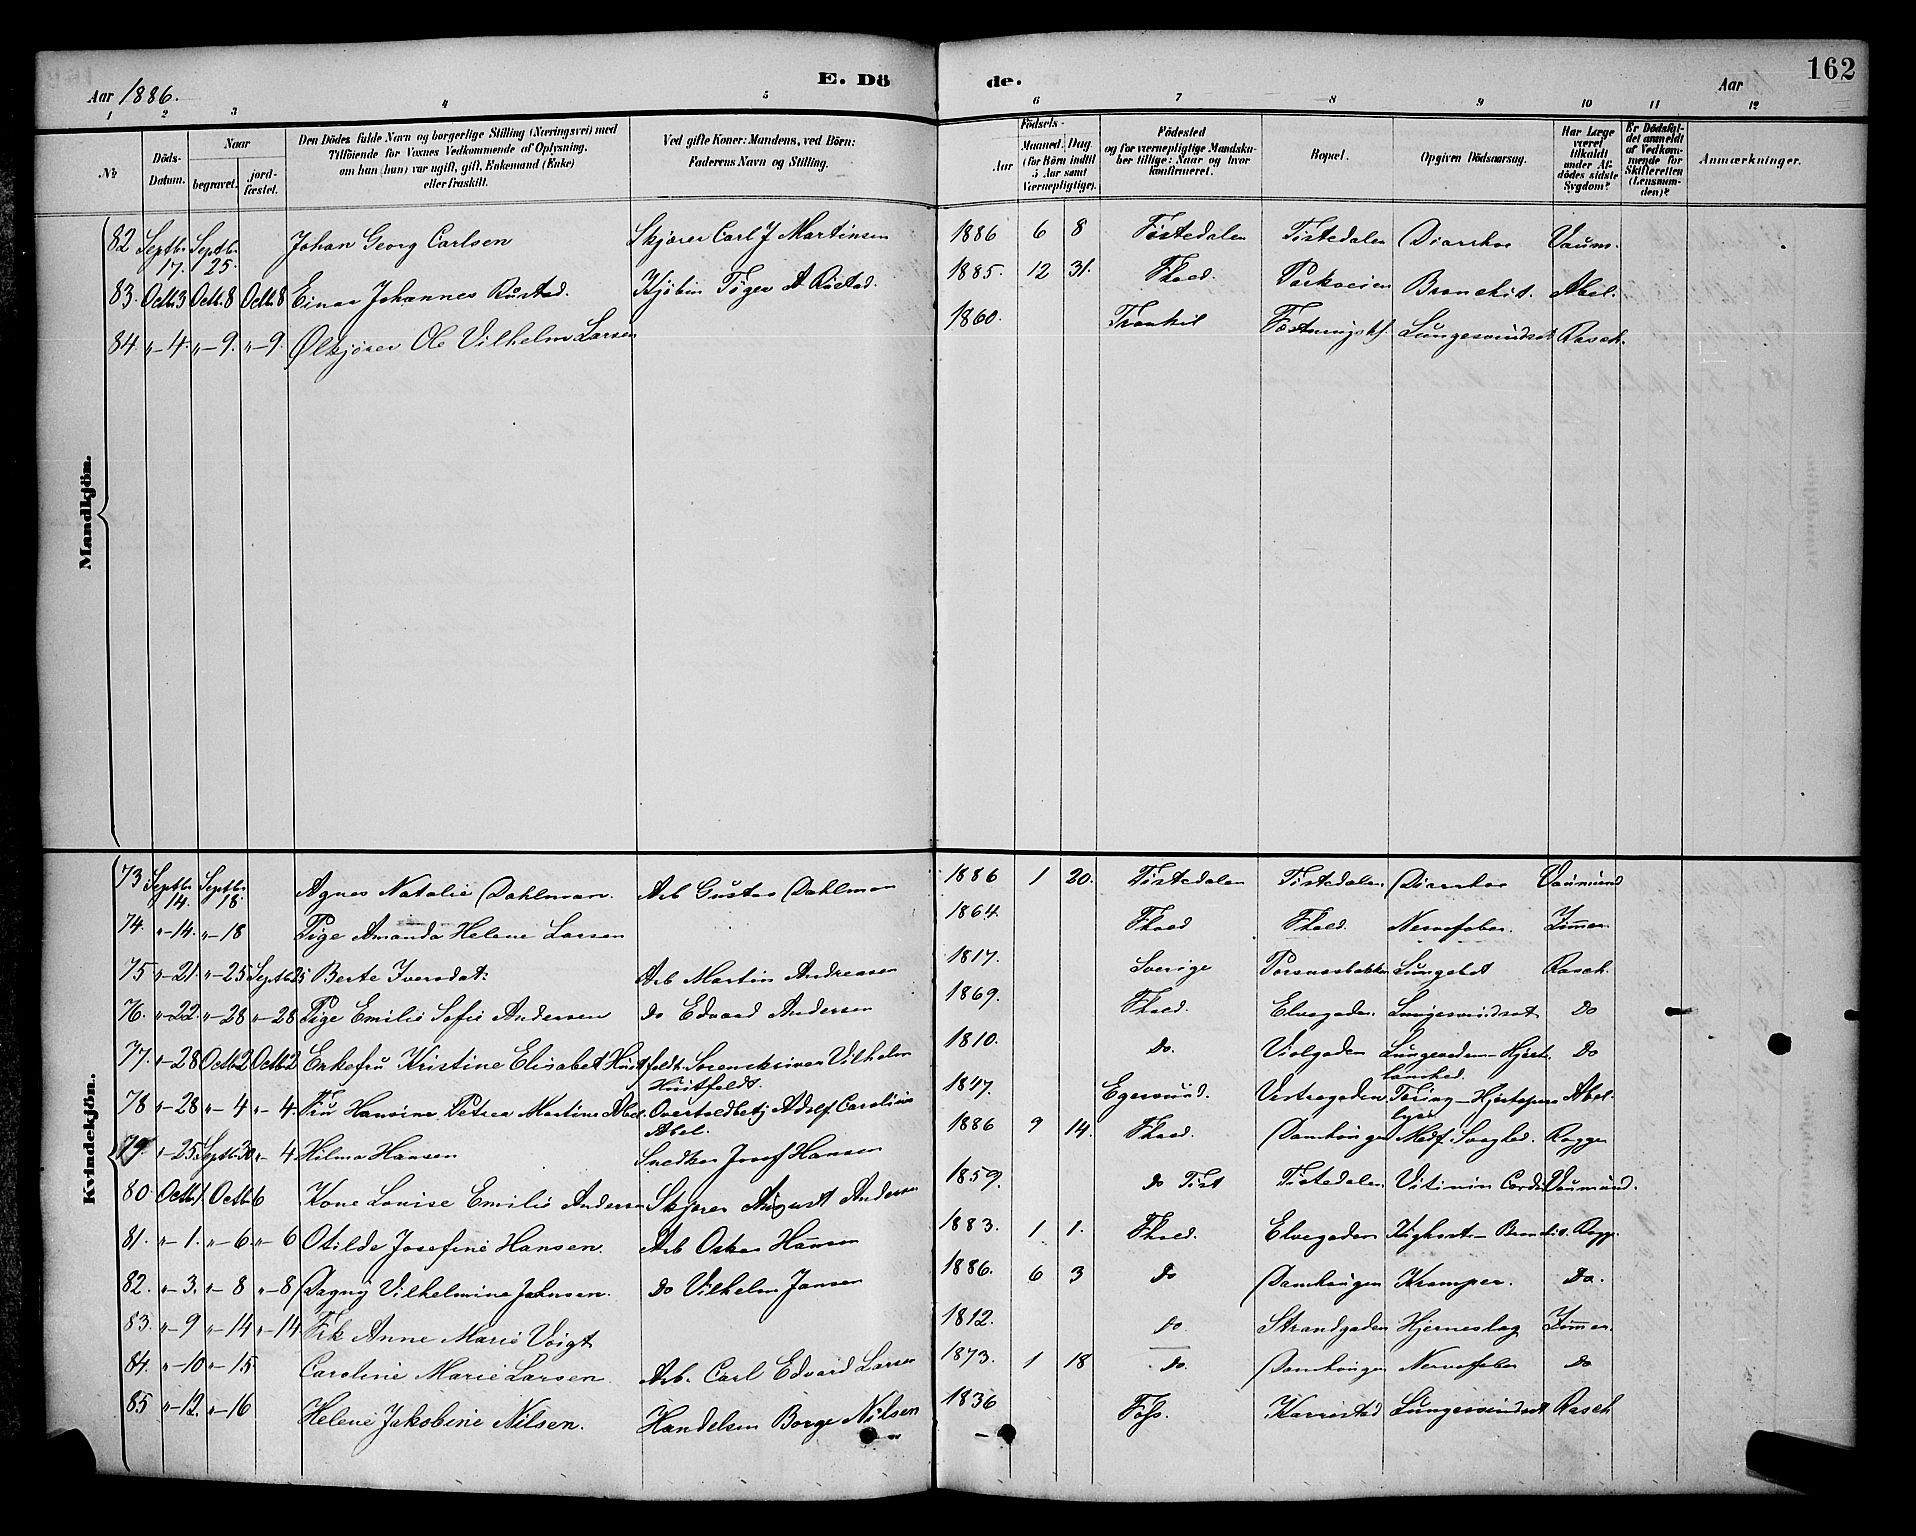 162
Aar 1886. E. Dö de. Aar
1 2 3 4 5 6 7 8 9 10 11 12
№
Döds-Datum.
Naar
begravet.
jordfæstet.
Den Dödes fulde Navn og borgerlige Stilling (Næringsvei) med Tilföiende for Voxnes Vedkommende af Oplysning, om han (hun) var ugift, gift, Enkemand (Enke) eller fraskilt.
Ved gifte Koner: Mandens, ved Börn: Faderens Navn og Stilling.
Födsels-
Aar
Maaned. Dag
(for Börn indtil 5 Aar samt Værnepligtige).
Födested og for værnepligtige Mandskaber tillige: Naar og hvor konfirmeret.
Bopæl.
Opgiven Dödsaarsag.
Har Læge været tilkaldt under Afdödes sidste Sygdom?
Er Dödsfaldet anmeldt af Vedkommende for Skifteretten (Lensmanden)?
Anmærkninger.
Mandkjön.
82 Septbr 17. Septbr. 25. Johan Georg Carlsen Skjører Carl J Martinsen 1886 6 8 Tistedalen Tistedalen Diarrhoe Vaum.
83. Octb 3 Octb. 8 Octb 8 Einar Johannes Rustad. Kjøbm Tøger A Rustad. 1885. 12 31. Fhald. Parkveien Bronchit. Abel.
84. " - 4. " - 9. " - 9. Ølkjører Ole Vilhelm Larsen 1860. Trankil Fæstningsk. Lungesvindsot Rasch.
Kvindekjön.
73. Septbr 14. Septbr 18. Agnes Natalie Dahlman. Arb Gustav Dahlman 1886 1 20. Tistedalen Tistedalen. Diarrhoe Vaumund
74. " - 14. " - 18 Pige Amanda Helene Larsen 1864 Fhald Fhald. Nervefeber.
75 " - 21. " - 25 Septb 25 Berte Iversdat: Arb Martin Andreasen 1817. Sverige Porsnesbakken Lungebet Rasch.
76. " - 22. " - 28 " - 28 Pige Emilie Sofie Andersen do Edvard Andersen 1869. Fhald. Elvegaden. Lungesvindsot Do
77. " - 28 Octb 2 Octb 2 Enkefru Kristine Elisabet Huitfeldt. Sorenskriver Vilhelm Huitfeldt. 1810. Do. Violgaden Lungeødem - Hjert. Do
78 " - 28 " - 4 " - 4. Fru Hansine Petrea Martine Abel. Overtoldbetj Adolf Carolius Abel. 1847. Egersund. Vestregaden Abel.
79. " - 25 Septb 30 " - 4 Hilma Hansen Snedker Josef Hansen 1886 9 14. Fhald. Damhaugen Medf. Svaghed. Rogge
80 Octb 1 Octb 6 Kone Louise Emilie Andersen Skjører August Andersen 1859. do Tist Tistedalen. Vitium Cordis Vaumund.
81. " - 1. " - 6 " - 6 Otilde Josefine Hansen. Arb Oskar Hansen 1883. 1. 1. Fhald. Elvegaden Kighoste - Bronchit. Rogge
82. " - 3. " - 8 " - 8 Dagny Vilhelmine Johnsen. do Vilhelm Jansen 1886. 6 3 Do Damhaugen Kramper. Do.
83. " - 9 " - 14 " - 14 Frk Anne Marie Voigt 1812. Do. Strandgaden Hjerneslag
84. " - 10 " - 15. Caroline Marie Larsen. Arb. Carl Edvard Larsen 1873. 1 18 Do. Damhaugen Nervefeber Do
85 " - 12. " - 16 Helene Jakobine Nilsen. Handelsm Borge Nilsen 1836 Karrestad Lungesvindsot Rasch